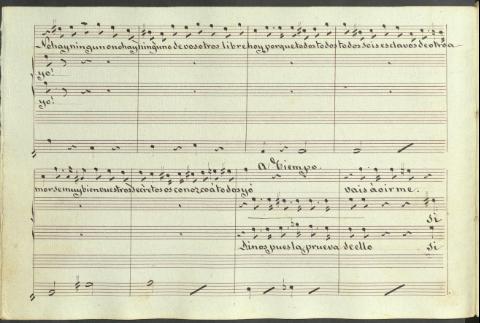 No hay ningun no hay ninguno de vosotros libre hoy porque todos todos todos sois esclavos de otro a
yo!
yo!
A Tiempo.
mor se muy bien vuestros secretos os conozco á todos yó vais á oirme.
si
Dinos pues la prueva de ello si